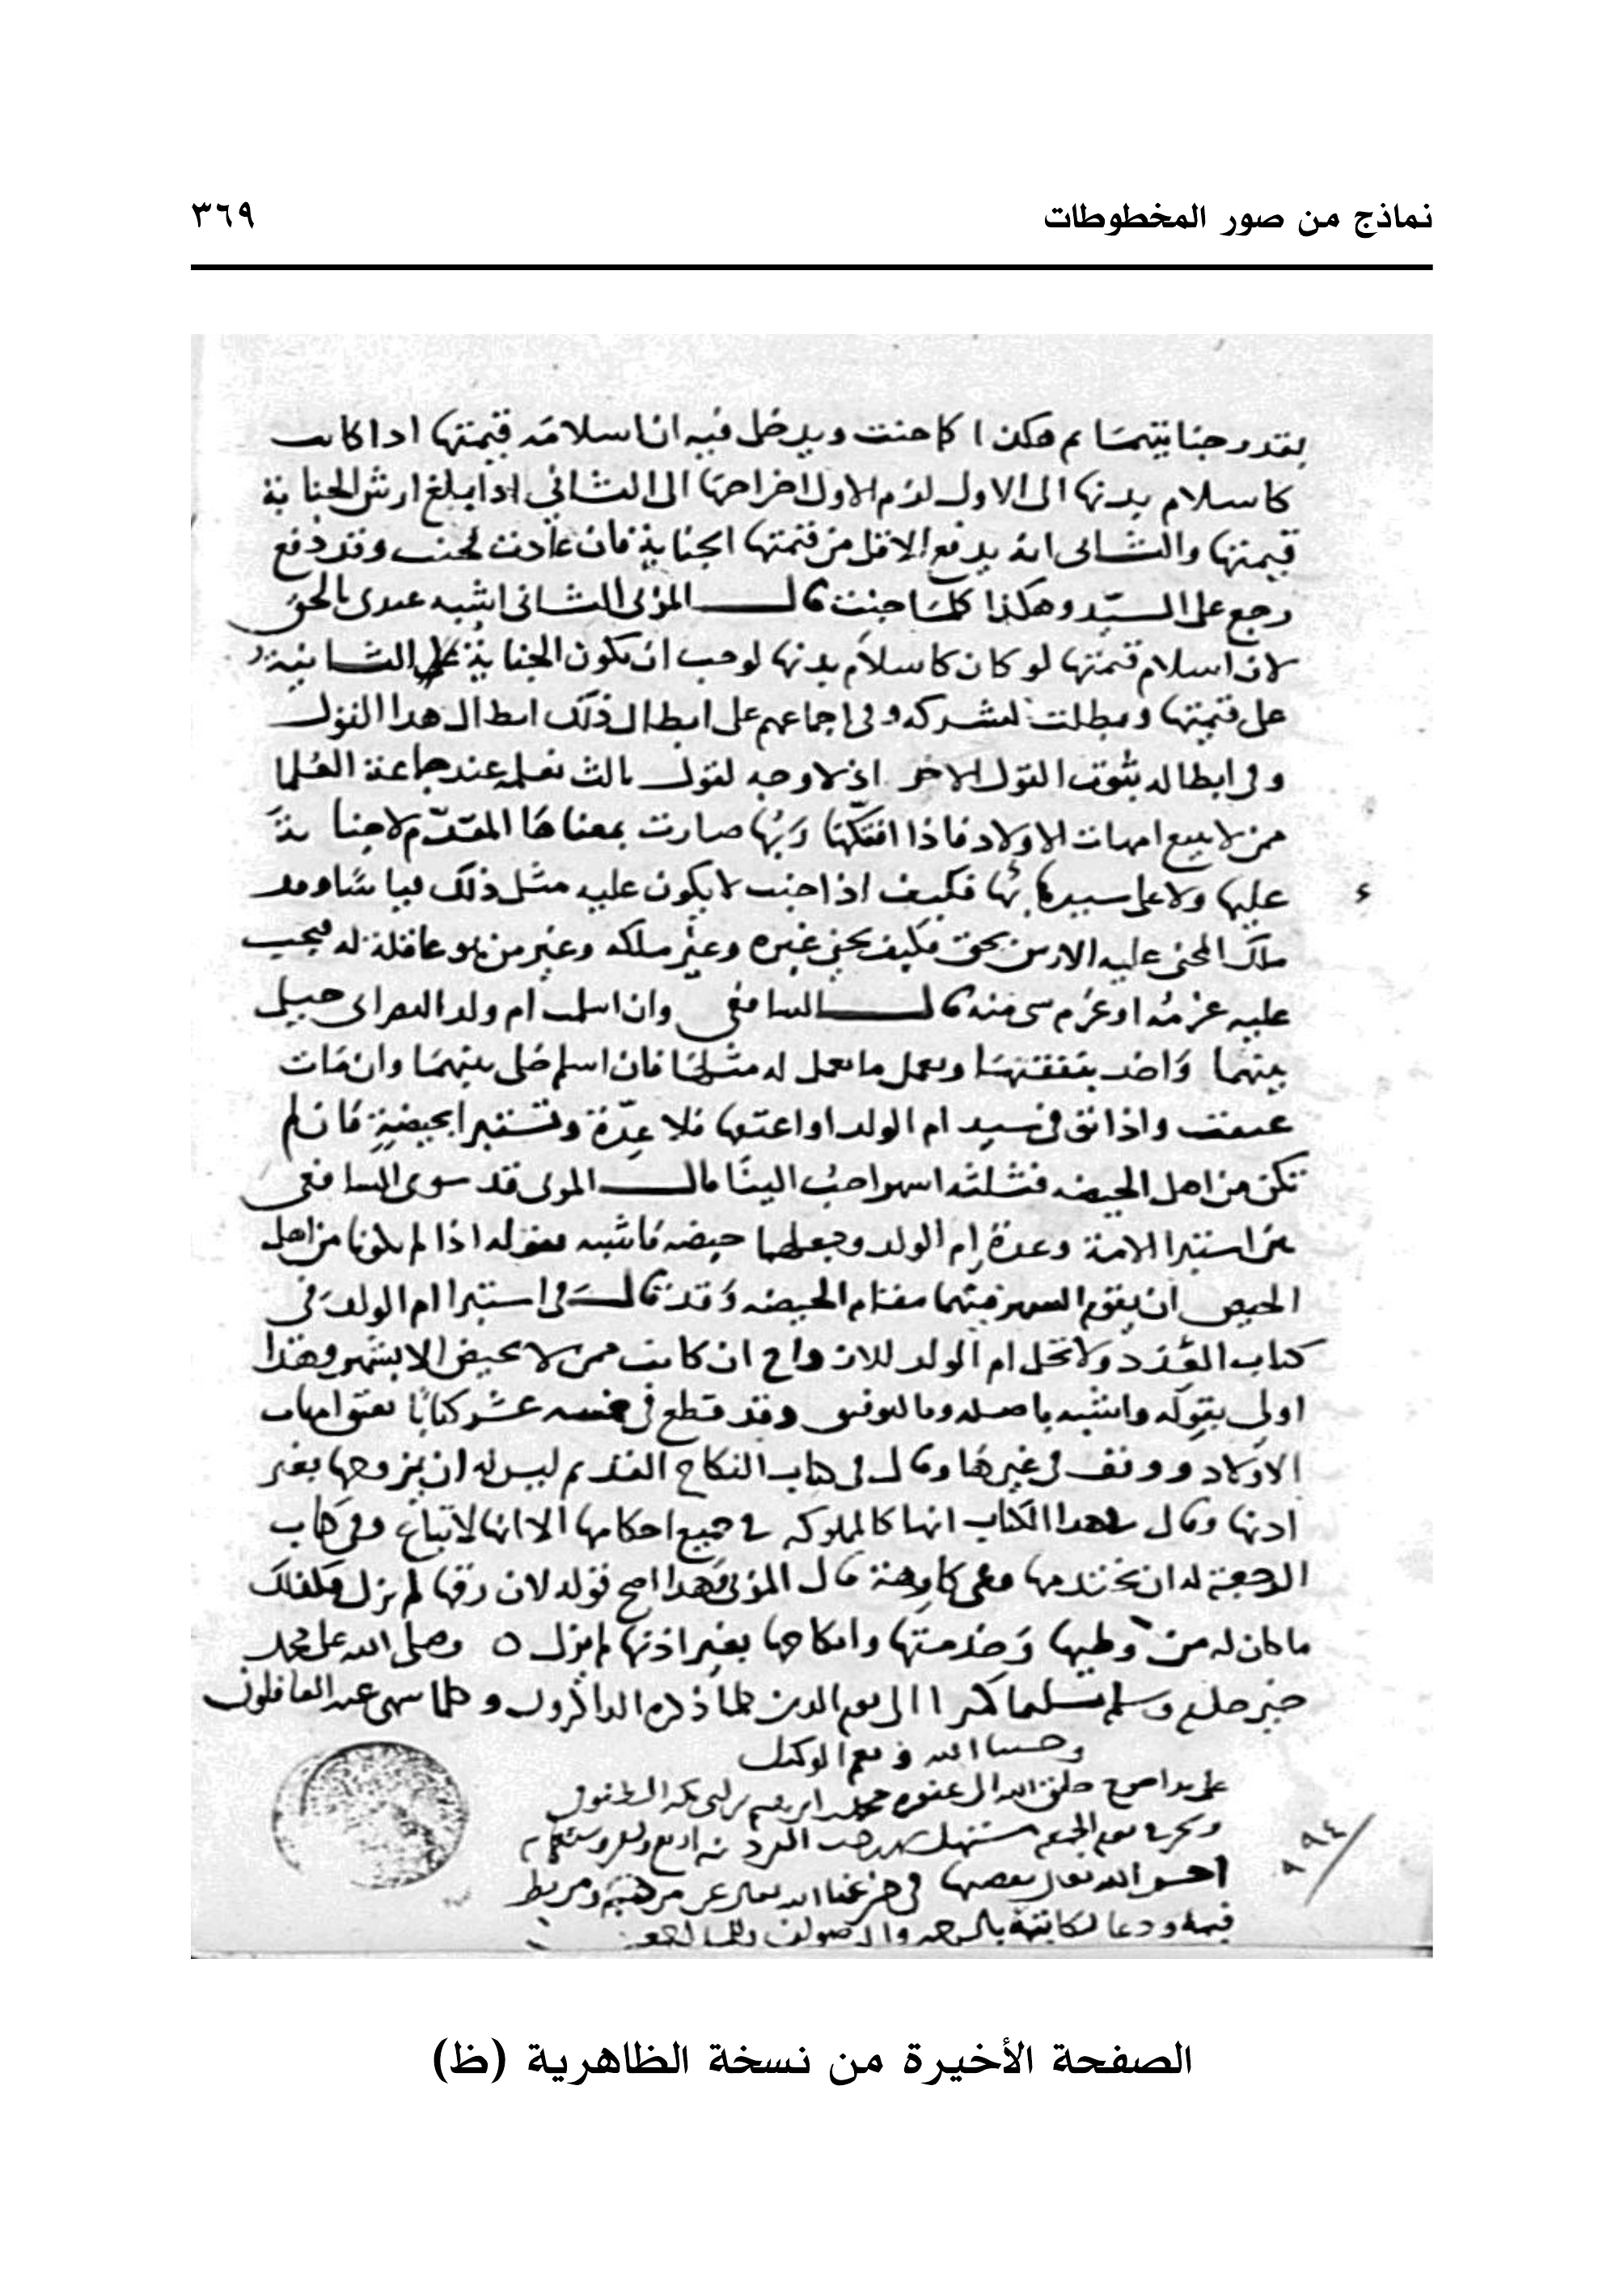 نماذج من صور المخطوطات
٣٦٩
بقدر جنايتهما ثم هكذا كلما جنت ويدخل فيه ان اسلامه قيمتها اذا كانت
كاسلام بدنها الى الاول لزم الاول اخراجها الى الثاني اذا بلغ ارش الجناية
قيمتها والثاني انه يدفع الاقل من قيمتها الجناية فان عادت فجنت وقد دفع
رجع على السيد وهكذا كلما جنت قال المزني الثاني اشبه عندي بالحق
لان اسلام قيمتها لو كان كاسلام بدنها لوجب ان تكون الجناية الثانية
على قيمتها وبطلت الشركة وفي اجماعهم على ابطال ذلك ابطال هذا القول
وفي ابطاله ثبوت القول الاخر اذ لا وجه لقول ثالث نعلمه عند جماعة العلما
ممن لا يبيع امهات الاولاد فاذا افتكها ربها صارت بمعناها المتقدم لا جناية
عليها ولا على سيدها بها فكيف اذا جنت لا يكون عليه مثل ذلك قياسا
ملك المجني عليه الارش بحق فكيف بجني غيره وغير ملكه وغير من هو عاقلة له فيجب
عليه غرمه او غرم شي منه قال الشافعي وان اسلمت ام ولد النصراني حيل
بينهما واخذ بنفقتها وتعمل ما يعمل له مثلها فان اسلم خلى بينهما وان مات
عتقت واذا توفي سيد ام الولد او اعتقها فلا عدة وتستبرا بحيضة فان لم
تكن من اهل الحيضه فثلثه اشهر احب الينا قال المزني قد سوى الشافعي
بين استبرا الامة وعدة ام الولد وجعلهما حيضه فاشبه بقوله اذا لم يكونا من اهل
الحيض ان يقوم الشهر فيهما مقام الحيضه وقد قال في استبرا ام الولد في
كتاب العدد ولا تحل ام الولد للازواج ان كانت ممن لا تحيض الا بشهر وهذا
اولى بقوله واشبه باصله وبالله التوفيق وقد قطع في خمسه عشر كتابا بعتق امهات
الاولاد ووقف في غيرها وقال في كتاب النكاح القديم ليس له ان يزوجها بغير
اذنها وقال في هذا الكتاب انها كالمملوكه في جميع احكامها الا انها لا تباع وفي كتاب
الرجعة له ان يختدمها وهي كارهة قال المزني وهذا اصح قوله لان رقها لم يزل فكذلك
ما كان له من وطيها وخدمتها وانكاحها بغير اذنها لم يزل ٥ وصلى الله على محمد
خير خلقه وسلم تسليما كثيرا الى يوم الدين كلما ذكره الذاكرون وكلما سهى عنه الغافلون
وحسبنا الله ونعم الوكيل
على يد احوج خلق الله الى عفوه محمد بن ابرهيم
الجمعه مستهل شهر رجب الفرد
احسن الله تعالى
ودعا لكاتبه
٩٩٤
الصفحة الأخيرة من نسخة الظاهرية (ظ)